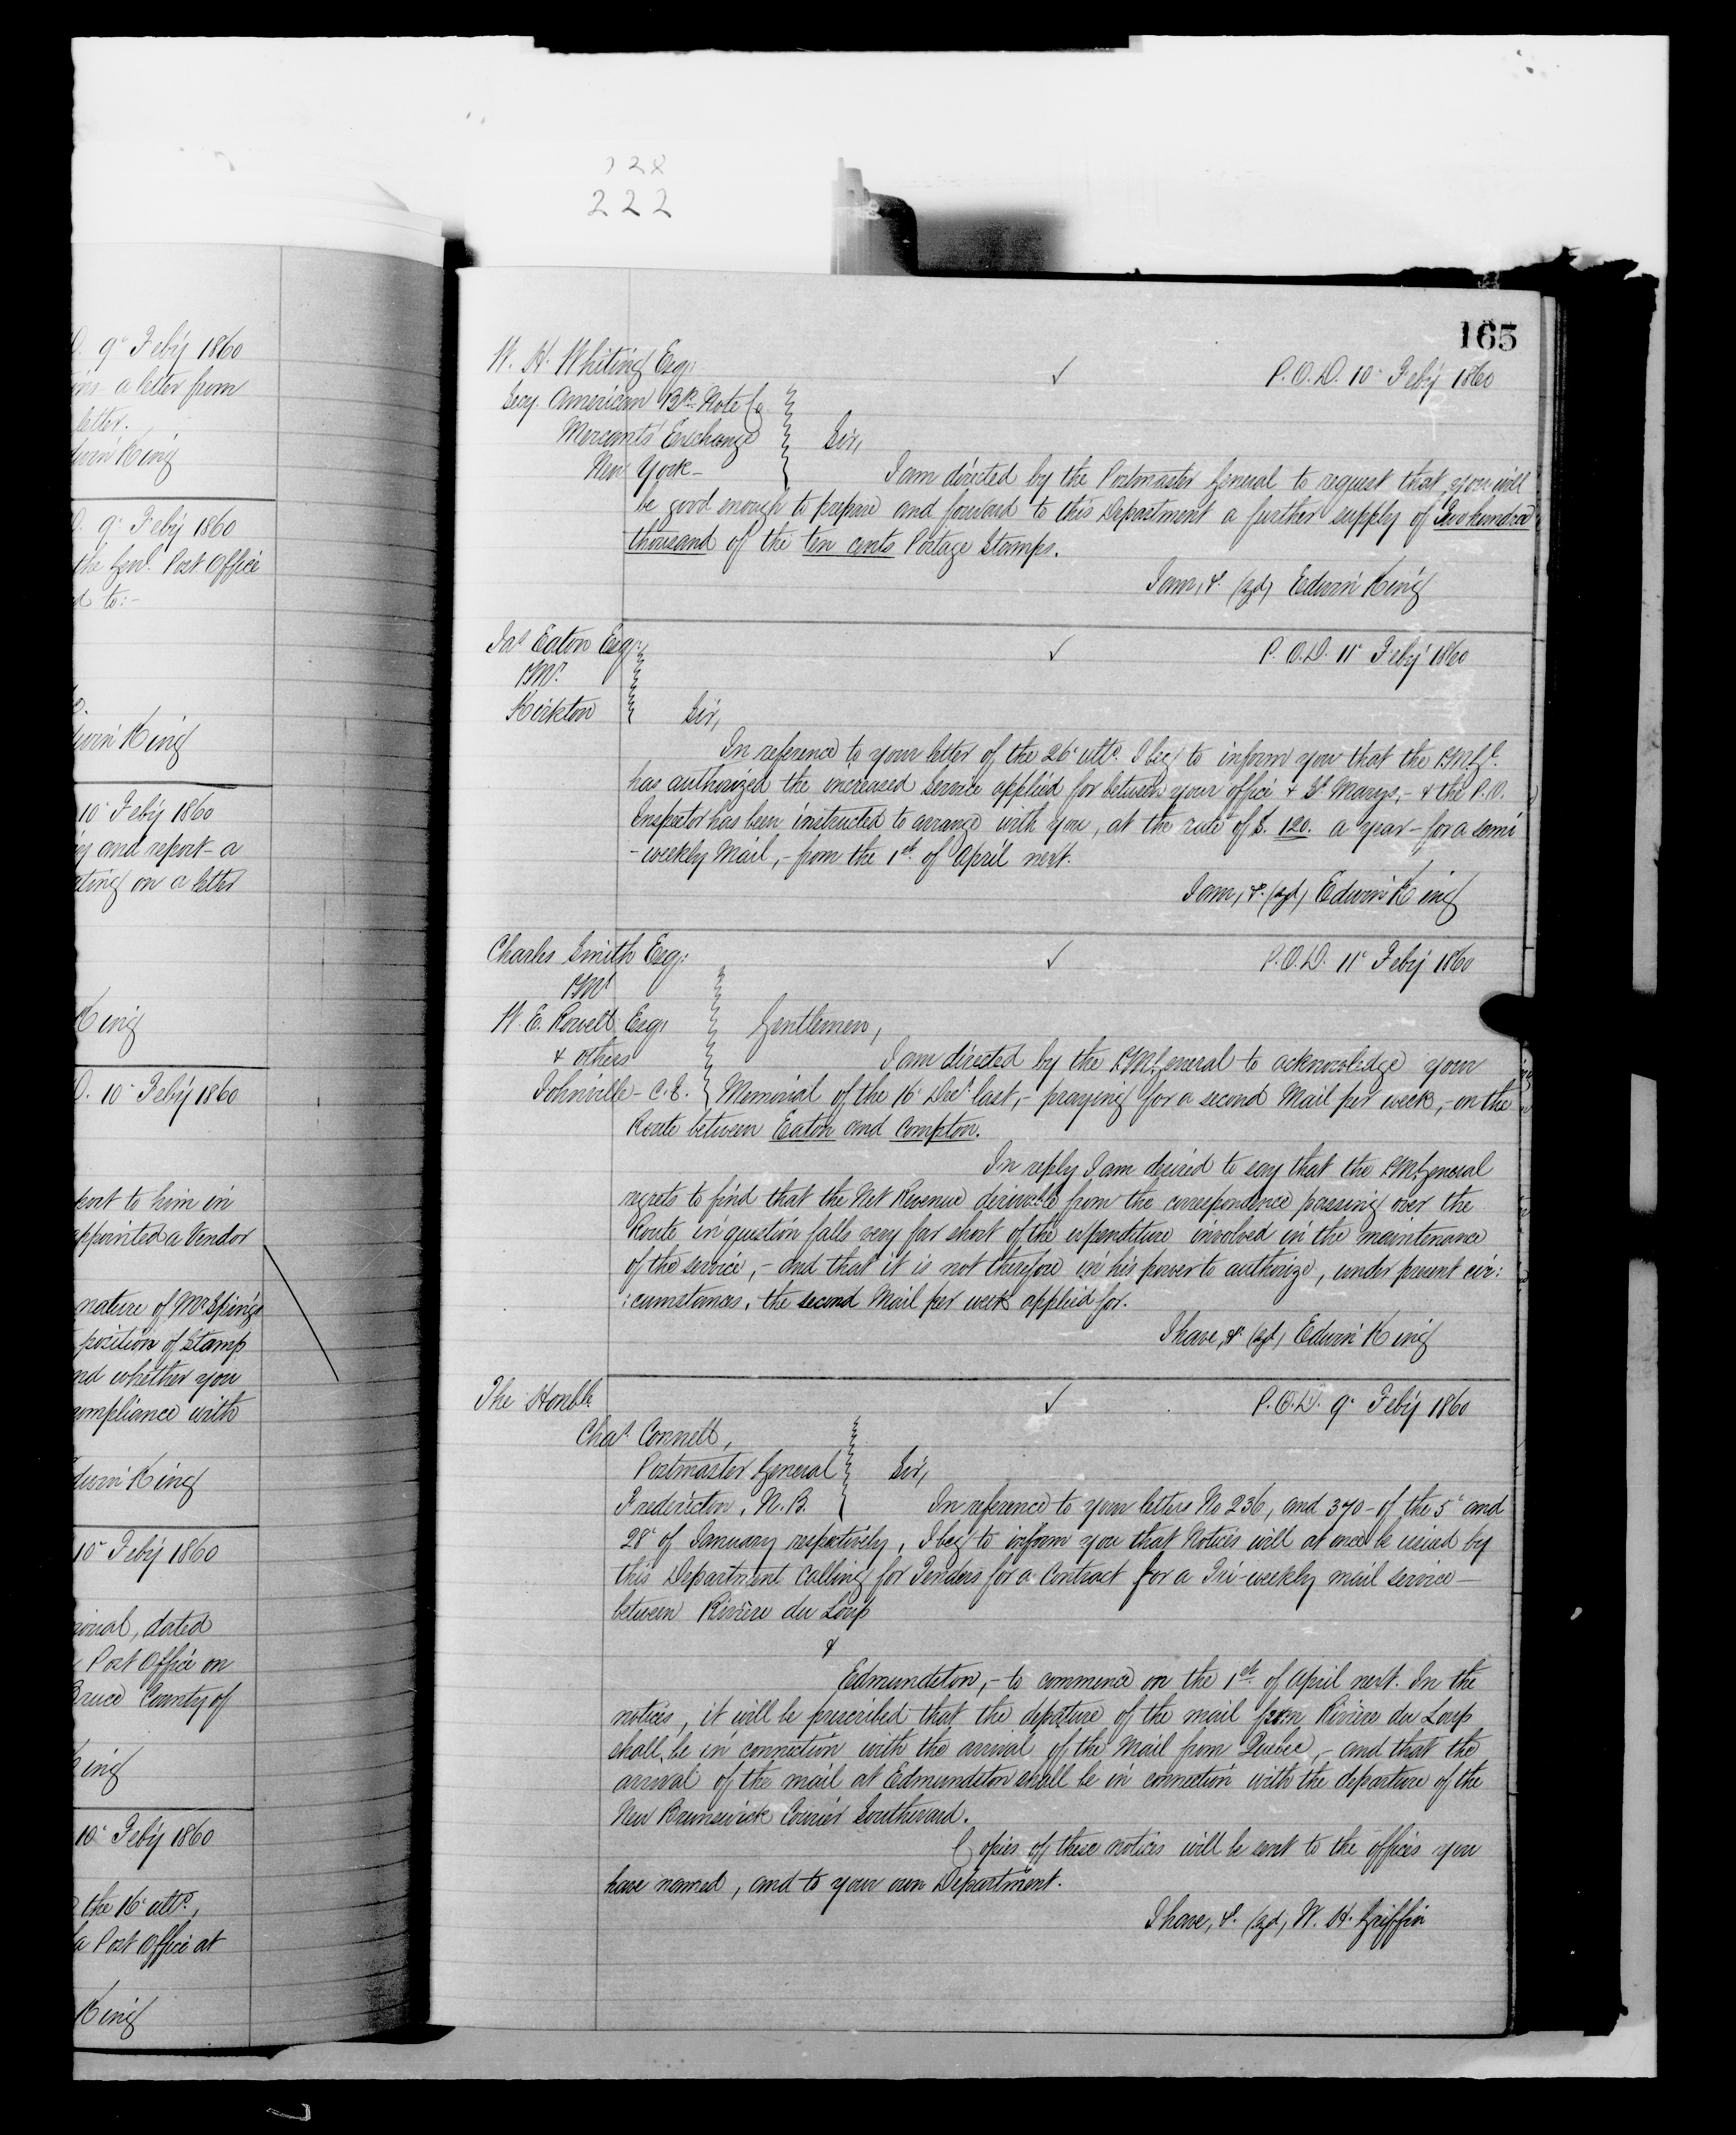 128
222
D. 9' Feby 1860
ins a letter from
letter.
dwin King
D. 9' Feby 1860
the Genl. Post Office
d to:-
dwin King
10' Feby 1860
and report a
ating on a letter
King
D. 10' Feby 1860
port to him in
appointed a Vendor
nature of Mr Spring's
position of Stamp
and whether you
compliance with
dwin King
10' Feby 1860
morial, dated
Post Office on
Bruce County of
King
10' Feby 1860
the 16' ulto,
a Post Office at
King
165
W. H. Whiting Esq:
P.O.D. 10' Feby 1860
Secy. American Bk. Note Co
Mercants' Exchange
Sir,
New York -
I am directed by the Postmaster General to request that you will
be good enough to prepare and forward to this Department a further supply of Two hundred
thousand of the ten cents Postage Stamps.
I am, &. (sgd) Edwin King
Jas Eaton Esq:
P.O.D. 11' Feby 1860
PMr.
Kirkton
Sir,
In reference to your letter of the 26' ulto. I beg to inform you that the PMGl.
has authorized the increased service applied for between your office & St Marys, - & the P.O.
Inspector has been instructed to arrange with you, at the rate of $. 120. a year - for a semi
- weekly Mail, - from the 1st. of April next.
I am, &. (sgd) Edwin King
Charles Smith Esq:
P.O.D. 11' Feby 1860
PMr
W. E. Rowell Esq:
Gentlemen,
& others
I am directed by the P.M.General to acknowledge your
Johnville - C.E.
Memorial of the 16' Decr last, - praying for a second Mail per week, - on the
Route between Eaton and Compton.
In reply I am desired to say that the P.M.General
regrets to find that the Net Revenue derivable from the correspondence passing over the
Route in question falls very far short of the expenditure involved in the maintenance
of the service, - and that it is not therefore in his power to authorize, under present cir:
:cumstances, the second Mail per week applied for.
I have, &. (sgd) Edwin King
The Honble.
P.O.D. 9' Feby 1860
Chas. Connell,
Postmaster General
Sir,
Fredericton, N.B.
In reference to your letters No 236, and 370 - of the 5' and
28' of January respectively, I beg to inform you that Notices will at once be issued by
this Department calling for Tenders for a Contract for a Tri-weekly mail service -
between Rivière du Loup
&
Edmundston, - to commence on the 1st. of April next. In the
notices, it will be prescribed that the departure of the mail from Rivière du Loup
shall be in connection with the arrival of the Mail from Quebec, - and that the
arrival of the mail at Edmundston shall be in connection with the departure of the
New Brunswick Courier Southward.
Copies of these notices will be sent to the offices you
have named, and to your own Department.
I have, &. (sgd) W. H. Griffin